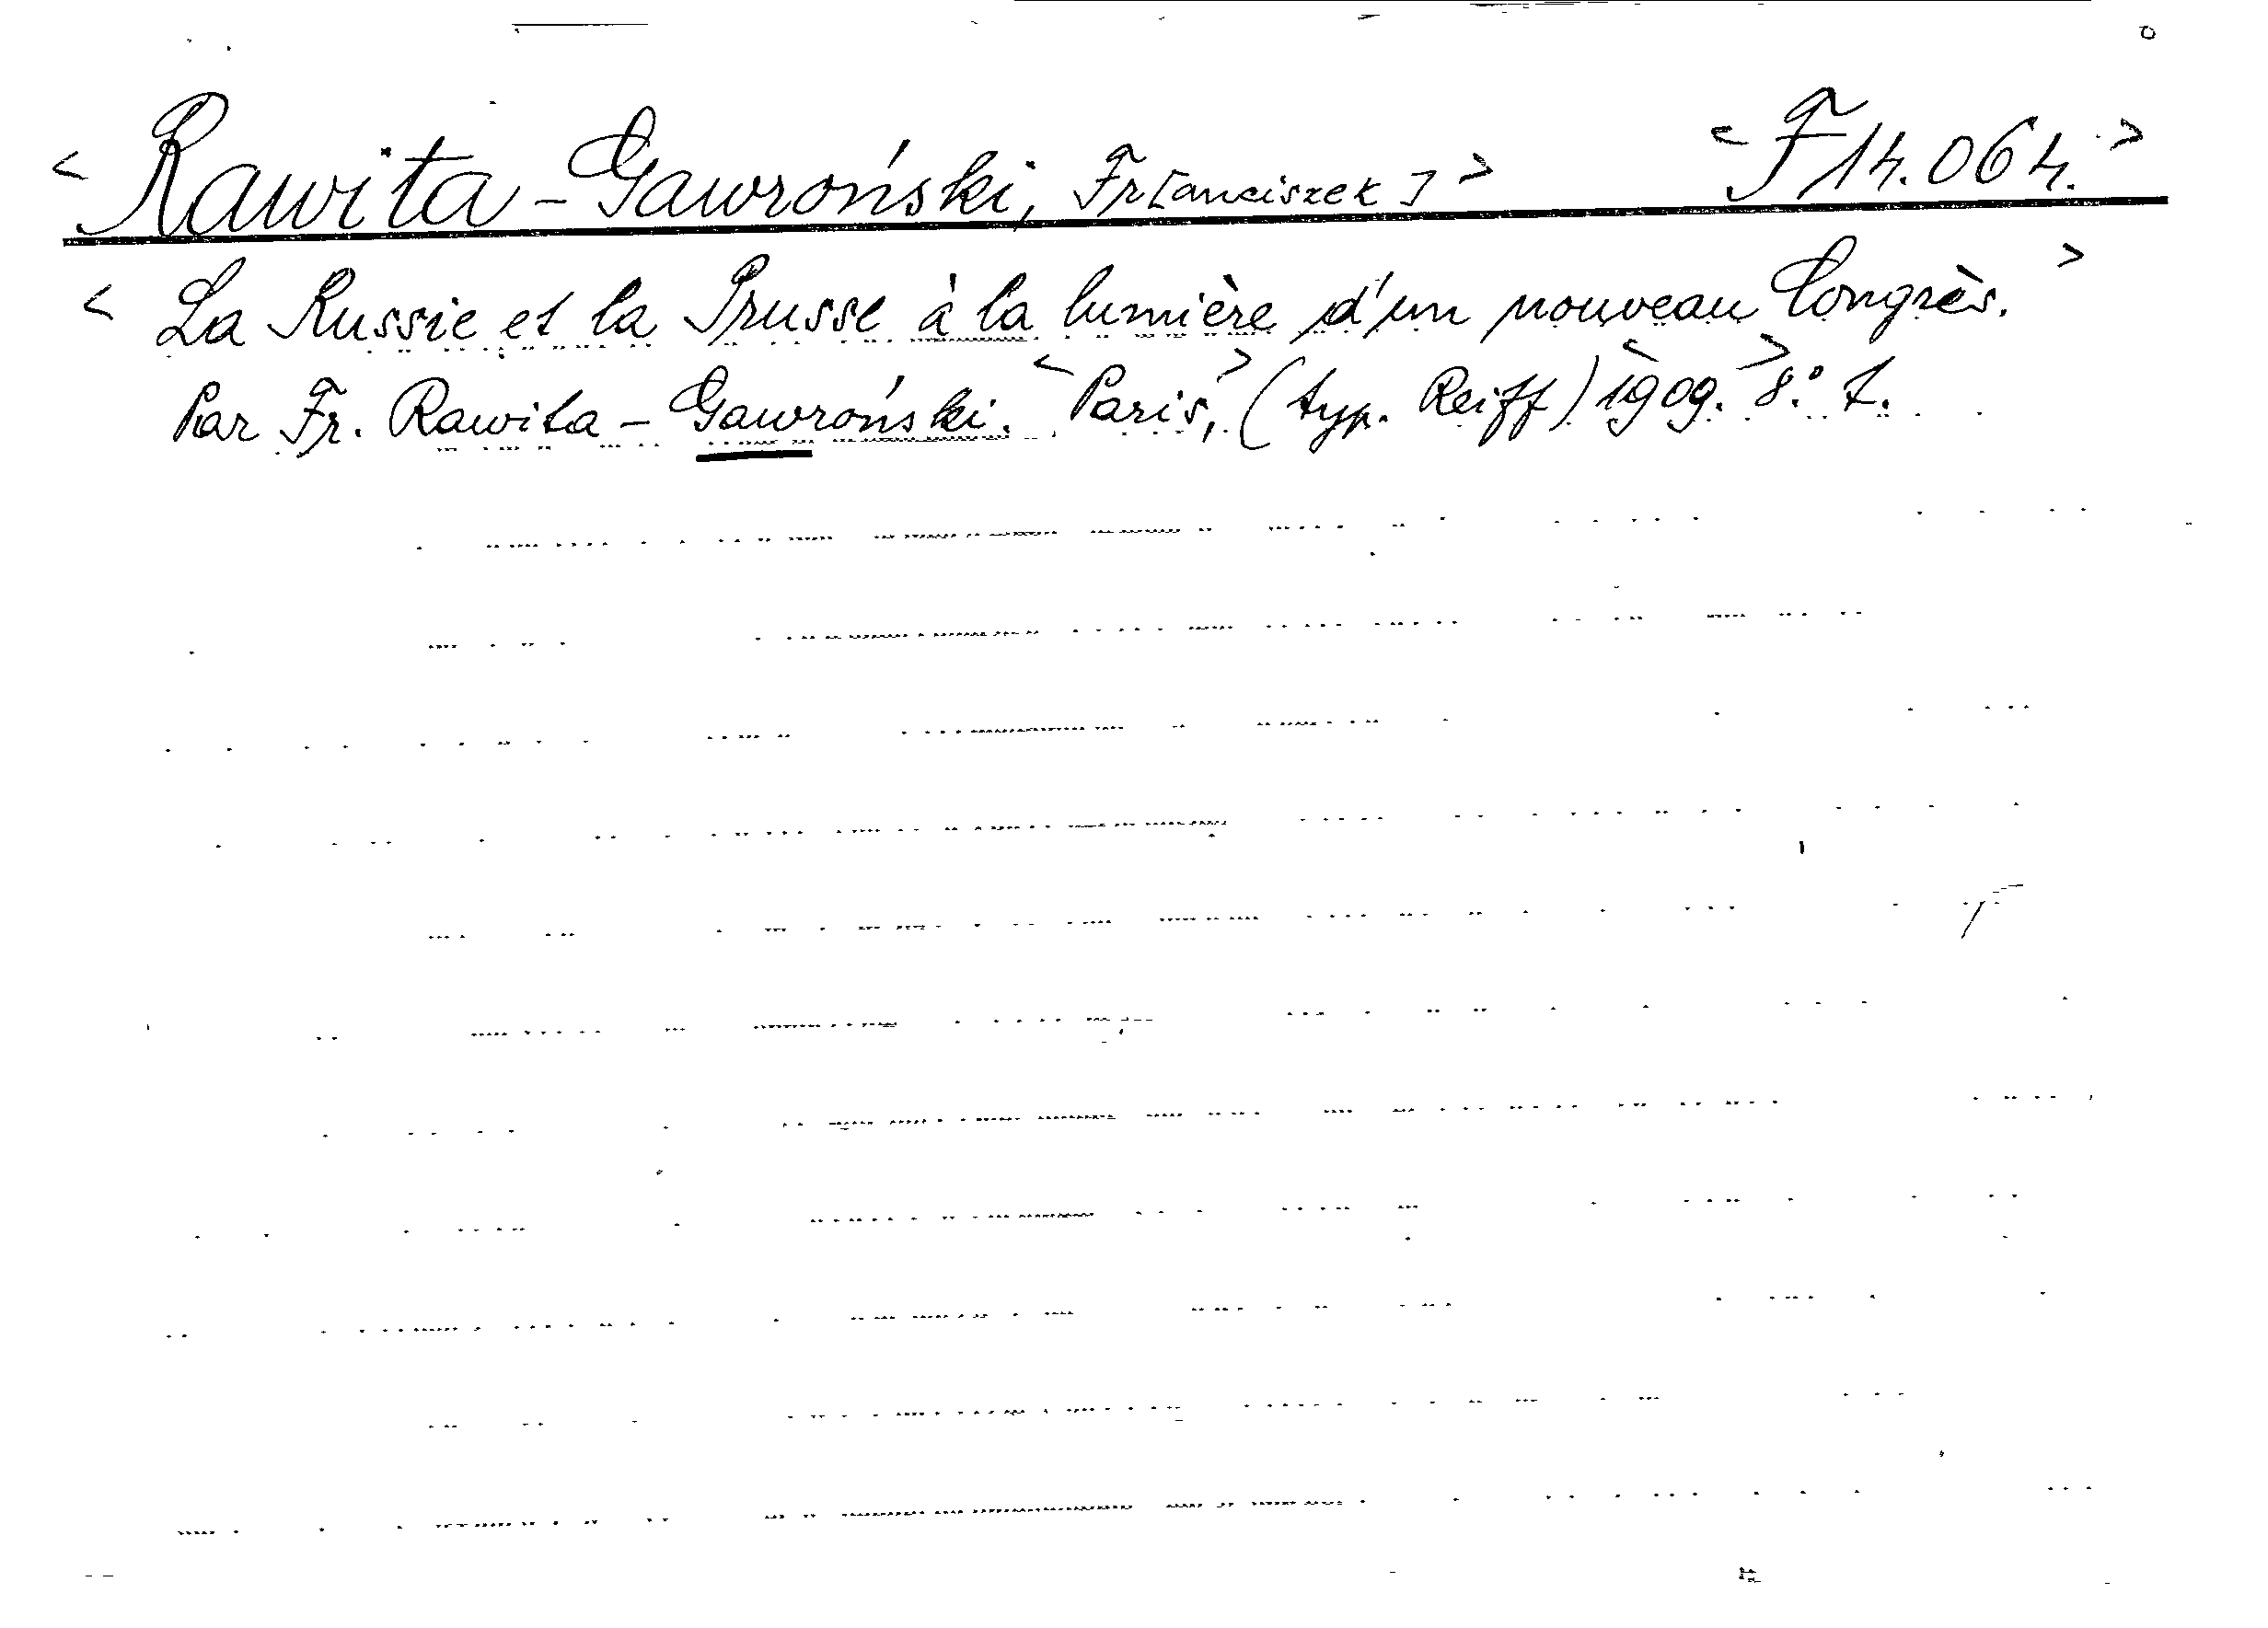 < Rawita - Gawroński, Fr[anciszek] > < F 14.064. >
< La Russie et la Prusse à la lumière d'un nouveau Congrès. >
Par Fr. Rawita - Gawroński. < Paris, > (typ. Reiff) < 1909. > 8.º